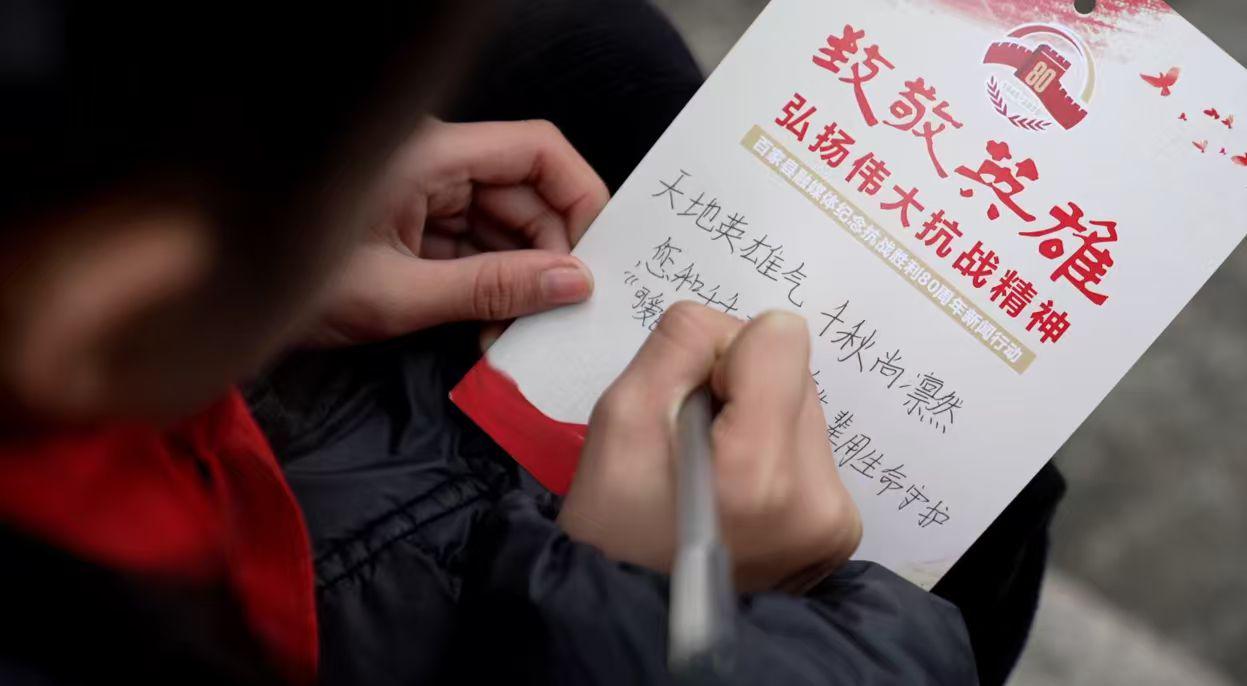 80
致敬英雄
弘扬伟大抗战精神
百家县融媒体纪念抗战胜利80周年新闻行动
天地英雄气 千秋尚凛然
您和千千 辈用生命守护